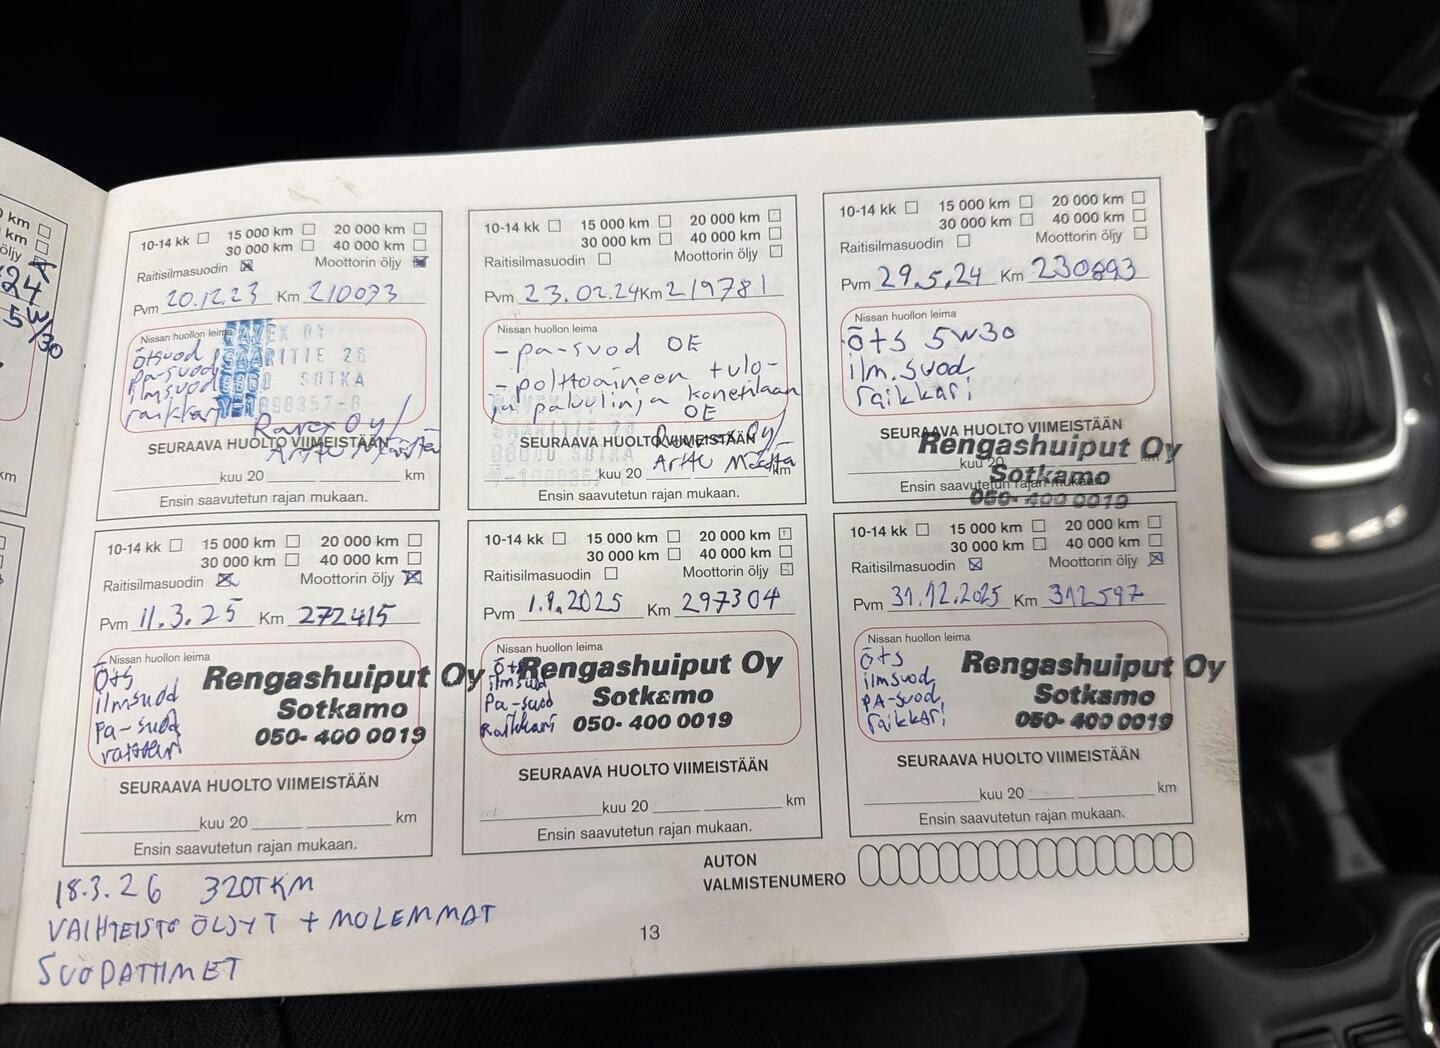 0 km
km
öljy
24
5W/30
km
10-14 kk 15 000 km 20 000 km
30 000 km 40 000 km
Raitisilmasuodin Moottorin öljy
Pvm 20.12.23 Km 210073
Nissan huollon leima
RAVEX OY
SAARITIE 26
88600 SOTKA
Y-1898357-8
ötsuod,
Pa-suod
ilmsuod
raikkari
Ravex Oy/
Arttu Määttä
SEURAAVA HUOLTO VIIMEISTÄÄN
kuu 20 km
Ensin saavutetun rajan mukaan.
10-14 kk 15 000 km 20 000 km
30 000 km 40 000 km
Raitisilmasuodin Moottorin öljy
Pvm 23.02.24 Km 219781
Nissan huollon leima
- pa-suod OE
- polttoaineen tulo-
ja paluulinja konetilaan
OE
SEURAAVA HUOLTO VIIMEISTÄÄN
Ravex Oy/
Arttu Määttä
kuu 20 km
Ensin saavutetun rajan mukaan.
10-14 kk 15 000 km 20 000 km
30 000 km 40 000 km
Raitisilmasuodin Moottorin öljy
Pvm 29.5.24 Km 230893
Nissan huollon leima
öts 5W30
ilm.suod
raikkari
SEURAAVA HUOLTO VIIMEISTÄÄN
Rengashuiput Oy
Sotkamo
050- 400 0019
kuu 20 km
Ensin saavutetun rajan mukaan.
10-14 kk 15 000 km 20 000 km
30 000 km 40 000 km
Raitisilmasuodin Moottorin öljy
Pvm 11.3.25 Km 272415
Nissan huollon leima
öts
ilmsuod
Pa-suod
Rengashuiput Oy
Sotkamo
050- 400 0019
SEURAAVA HUOLTO VIIMEISTÄÄN
kuu 20 km
Ensin saavutetun rajan mukaan.
10-14 kk 15 000 km 20 000 km
30 000 km 40 000 km
Raitisilmasuodin Moottorin öljy
Pvm 1.9.2025 Km 297304
Nissan huollon leima
öts
ilmsuod
Pa-suod
Raikkari
Rengashuiput Oy
Sotkamo
050- 400 0019
SEURAAVA HUOLTO VIIMEISTÄÄN
kuu 20 km
Ensin saavutetun rajan mukaan.
10-14 kk 15 000 km 20 000 km
30 000 km 40 000 km
Raitisilmasuodin Moottorin öljy
Pvm 31.12.2025 Km 312597
Nissan huollon leima
öts
ilmsuod
PA-suod
raikkari
Rengashuiput Oy
Sotkamo
050- 400 0019
SEURAAVA HUOLTO VIIMEISTÄÄN
kuu 20 km
Ensin saavutetun rajan mukaan.
AUTON
VALMISTENUMERO
18.3.26 320TKM
VAIHTEISTO ÖLJYT + MOLEMMAT
SUODATTIMET
13